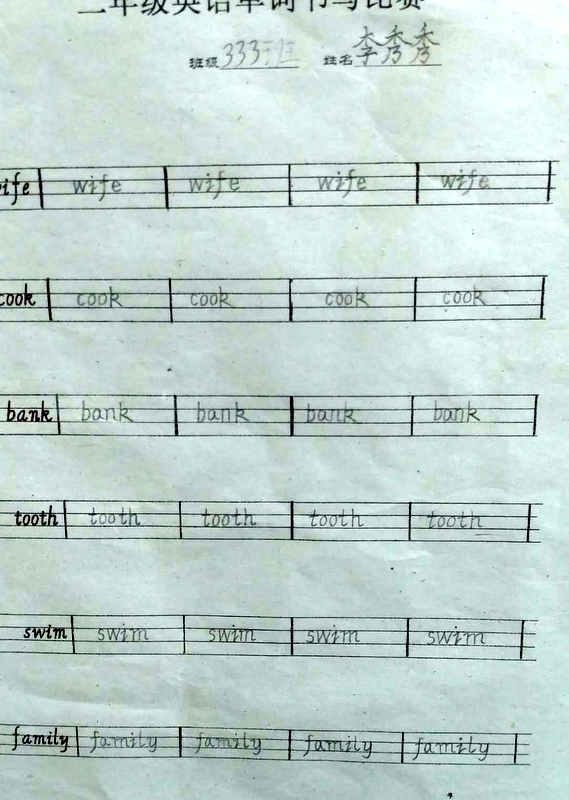 二年级英语单词书写比赛
班级 333班 姓名 李秀秀
wife wife wife wife wife
cook cook cook cook cook
bank bank bank bank bank
tooth tooth tooth tooth tooth
swim swim swim swim swim
family family family family family